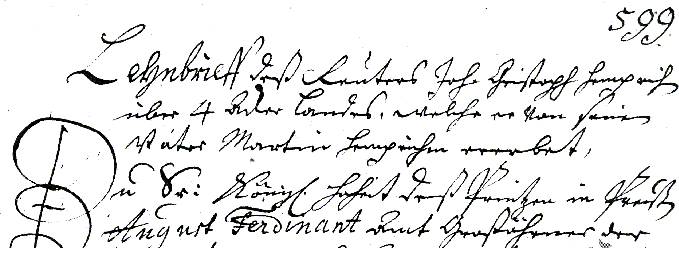 599
Lehnbrieff deß Reuters Joh. Cristoph Hemprich
über 4 Acker Landes, welche er von seinen
Vater Martin Hemprichen ererbet,
Zu Sr: Königl. Hoheit deß Printzen in Preuß
August Ferdinant Amt Großörner der